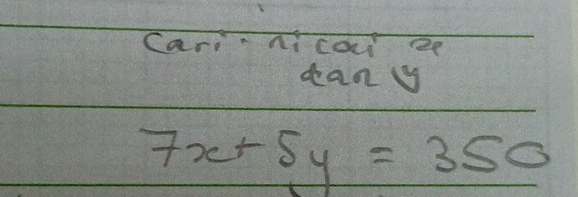 Cari nicai x
dan y
7x + 5y = 350